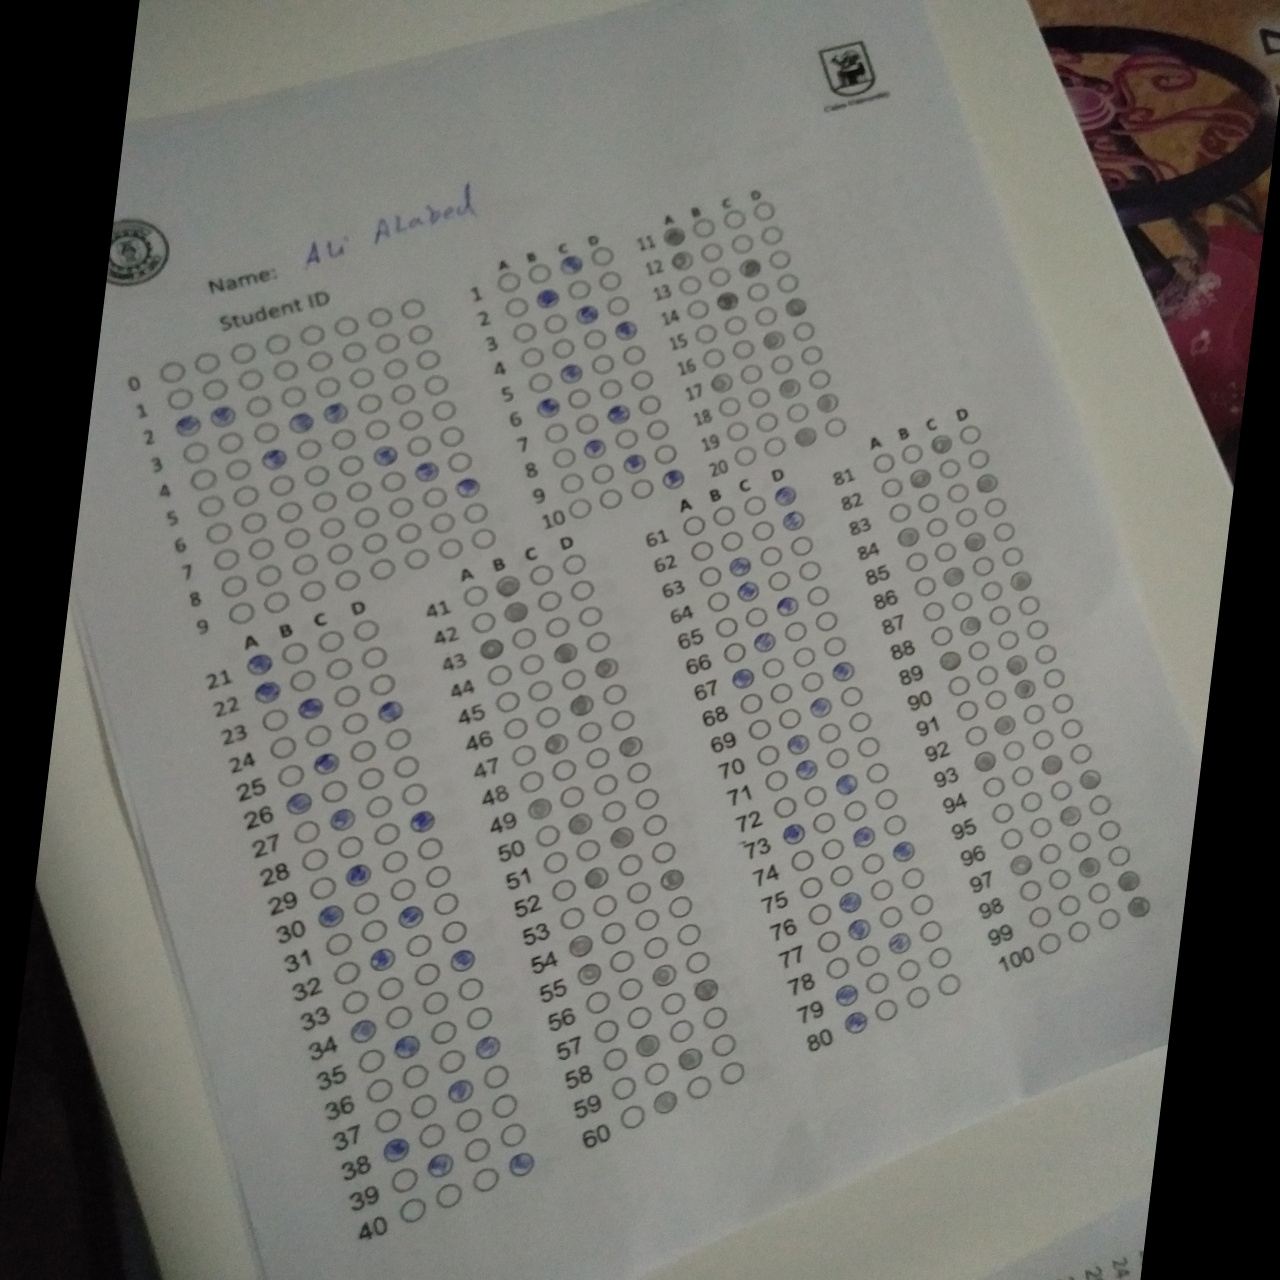 Name: Ali Alabed
Student ID
0
1
2
3
4
5
6
7
8
9
A B C D
1
2
3
4
5
6
7
8
9
10
A B C D
11
12
13
14
15
16
17
18
19
20
A B C D
21
22
23
24
25
26
27
28
29
30
31
32
33
34
35
36
37
38
39
40
A B C D
41
42
43
44
45
46
47
48
49
50
51
52
53
54
55
56
57
58
59
60
A B C D
61
62
63
64
65
66
67
68
69
70
71
72
73
74
75
76
77
78
79
80
A B C D
81
82
83
84
85
86
87
88
89
90
91
92
93
94
95
96
97
98
99
100
24